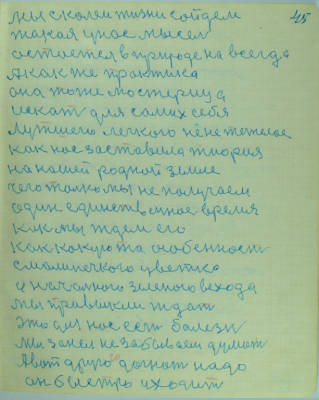 45
мы с колеи жизни сойдем
такая у нас мысел
остоется в природе на всегда
А как же практика
она тоже мостерица
искат для самих себя
лутшего легкого не не тежолое
как нас заставила теория
на нашей родной земле
чего толко мы не получаем
один единствмное время
как мы ждем его
как какую та особенност
смаленечкого цветка
с началного зеленого всхода
мы привыкли ждат
Это для нас ест болезн
мы за нея не забываем думат
А вот друго догнат надо
он быстро уходит